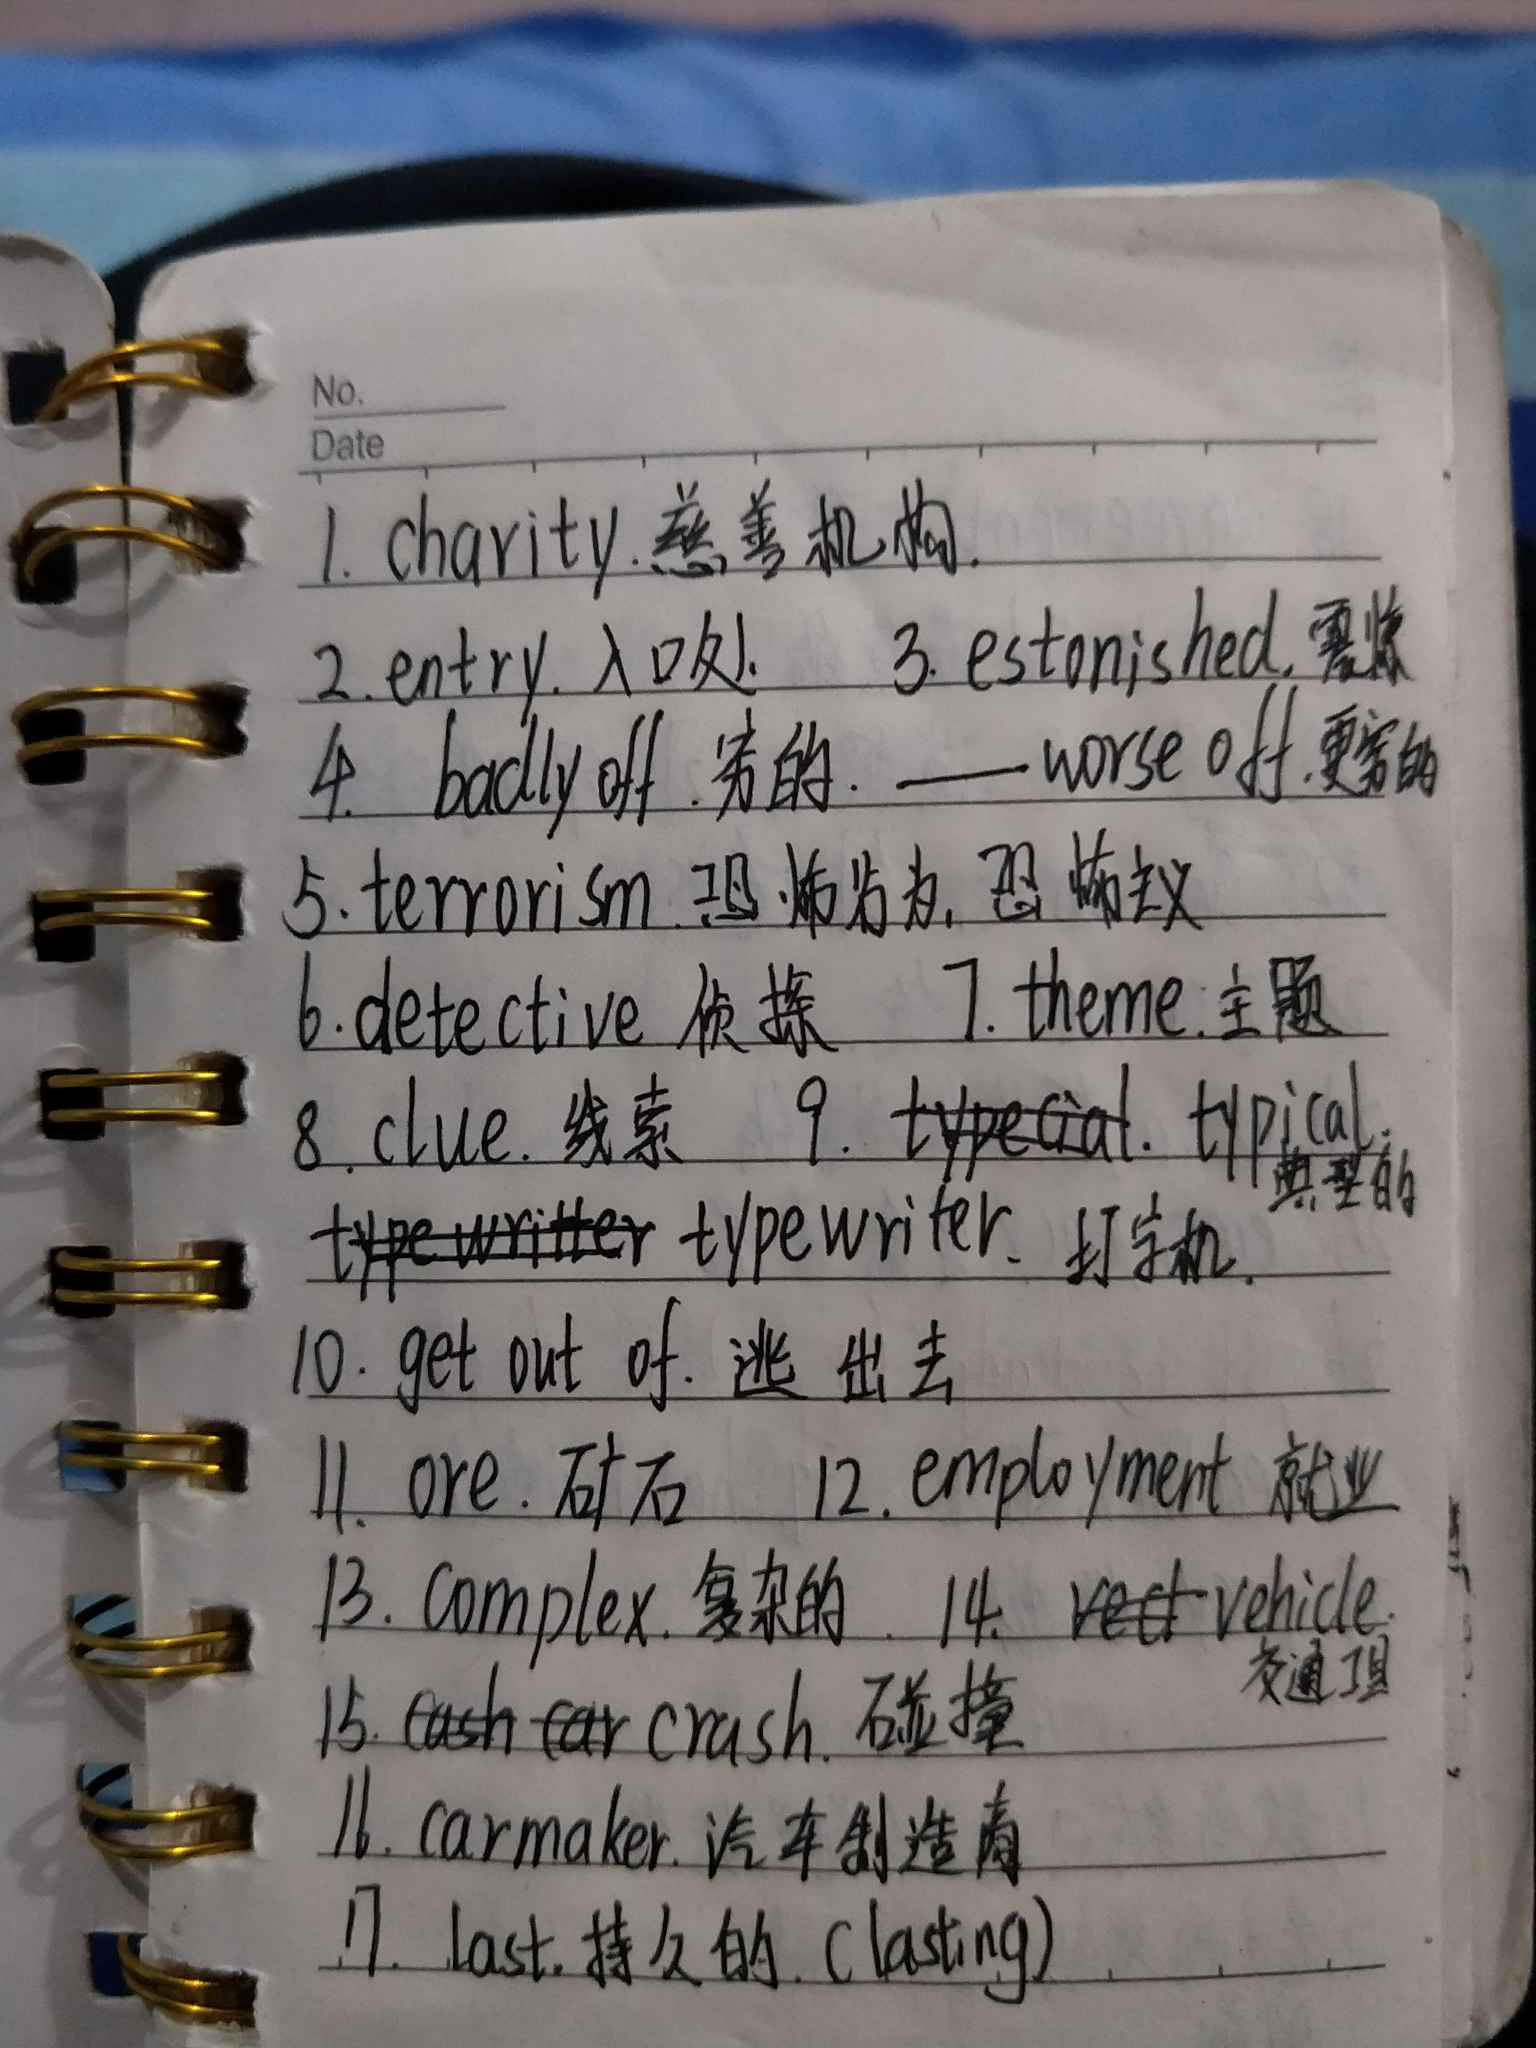 No.
Date
1. charity. 慈善机构.
2. entry. 入口处. 3. estonished. 震惊
4. badly off. 穷的. —— worse off. 更穷的
5. terrorism 恐怖为, 恐怖主义
6. detective 侦探 7. theme. 主题
8. clue. 线索 9. typecial. typical.
典型的
typewritter typewriter. 打字机.
10. get out of. 逃出去
11. ore. 矿石 12. employment 就业
13. complex. 复杂的. 14. vect vehicle.
交通工具
15. cash car crash. 碰撞
16. carmaker. 汽车制造商
17. last. 持久的. (lasting)